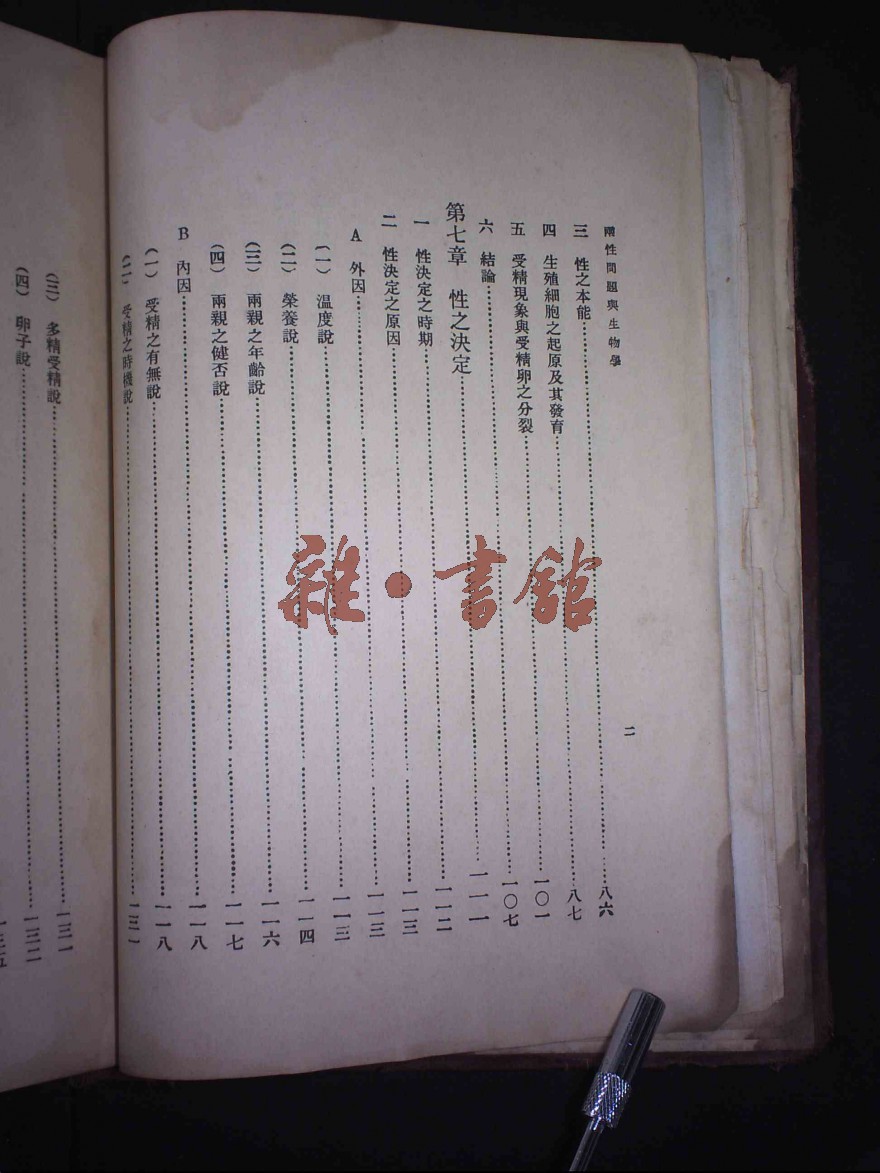 兩性問題與生物學
二
三 性之本能……八六
四 生殖細胞之起原及其發育……八七
五 受精現象與受精卵之分裂……一〇一
六 結論……一〇七
第七章 性之決定……一一一
一 性決定之時期……一一二
二 性決定之原因……一一三
A 外因……一一三
(一) 温度說……一一三
(二) 榮養說……一一四
(三) 兩親之年齡說……一一六
(四) 兩親之健否說……一一七
B 內因……一一八
(一) 受精之有無說……一一八
(二) 受精之時機說……一三一
(三) 多精受精說……一三一
(四) 卵子說……一三二
雜·書館